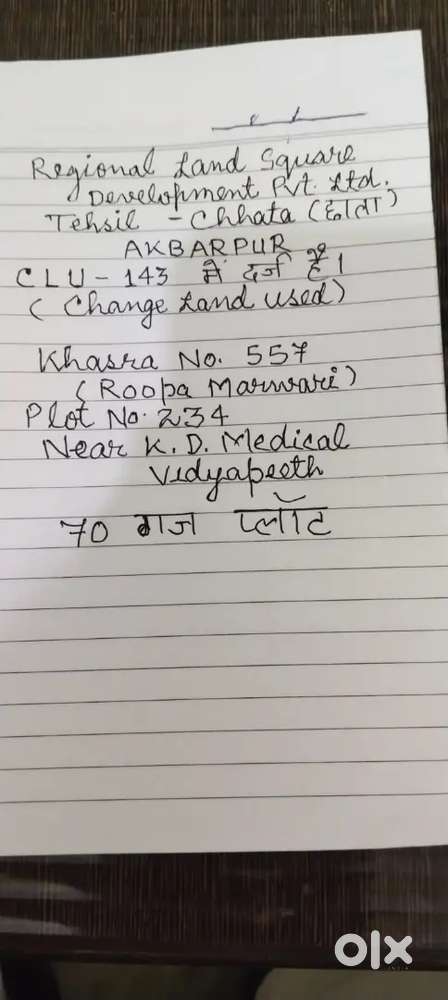 Regional Land Square
Development Pvt. Ltd.
Tehsil - Chhata (छाता)
AKBARPUR
CLU - 143 में दर्ज है।
(Change Land used)
Khasra No. 557
(Roopa Marwari)
Plot No. 234
Near K. D. Medical
Vidyapeeth
70 गज प्लॉट
olx